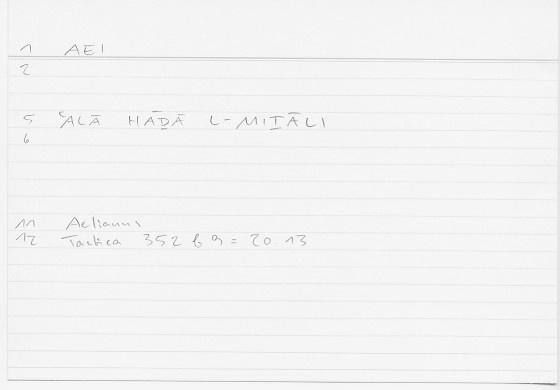 1 AEI
2
5 ʿALĀ HĀḎĀ L-MIṮĀLI
6
11 Aelianus
12 Tactica 352 b 9 = 20.13